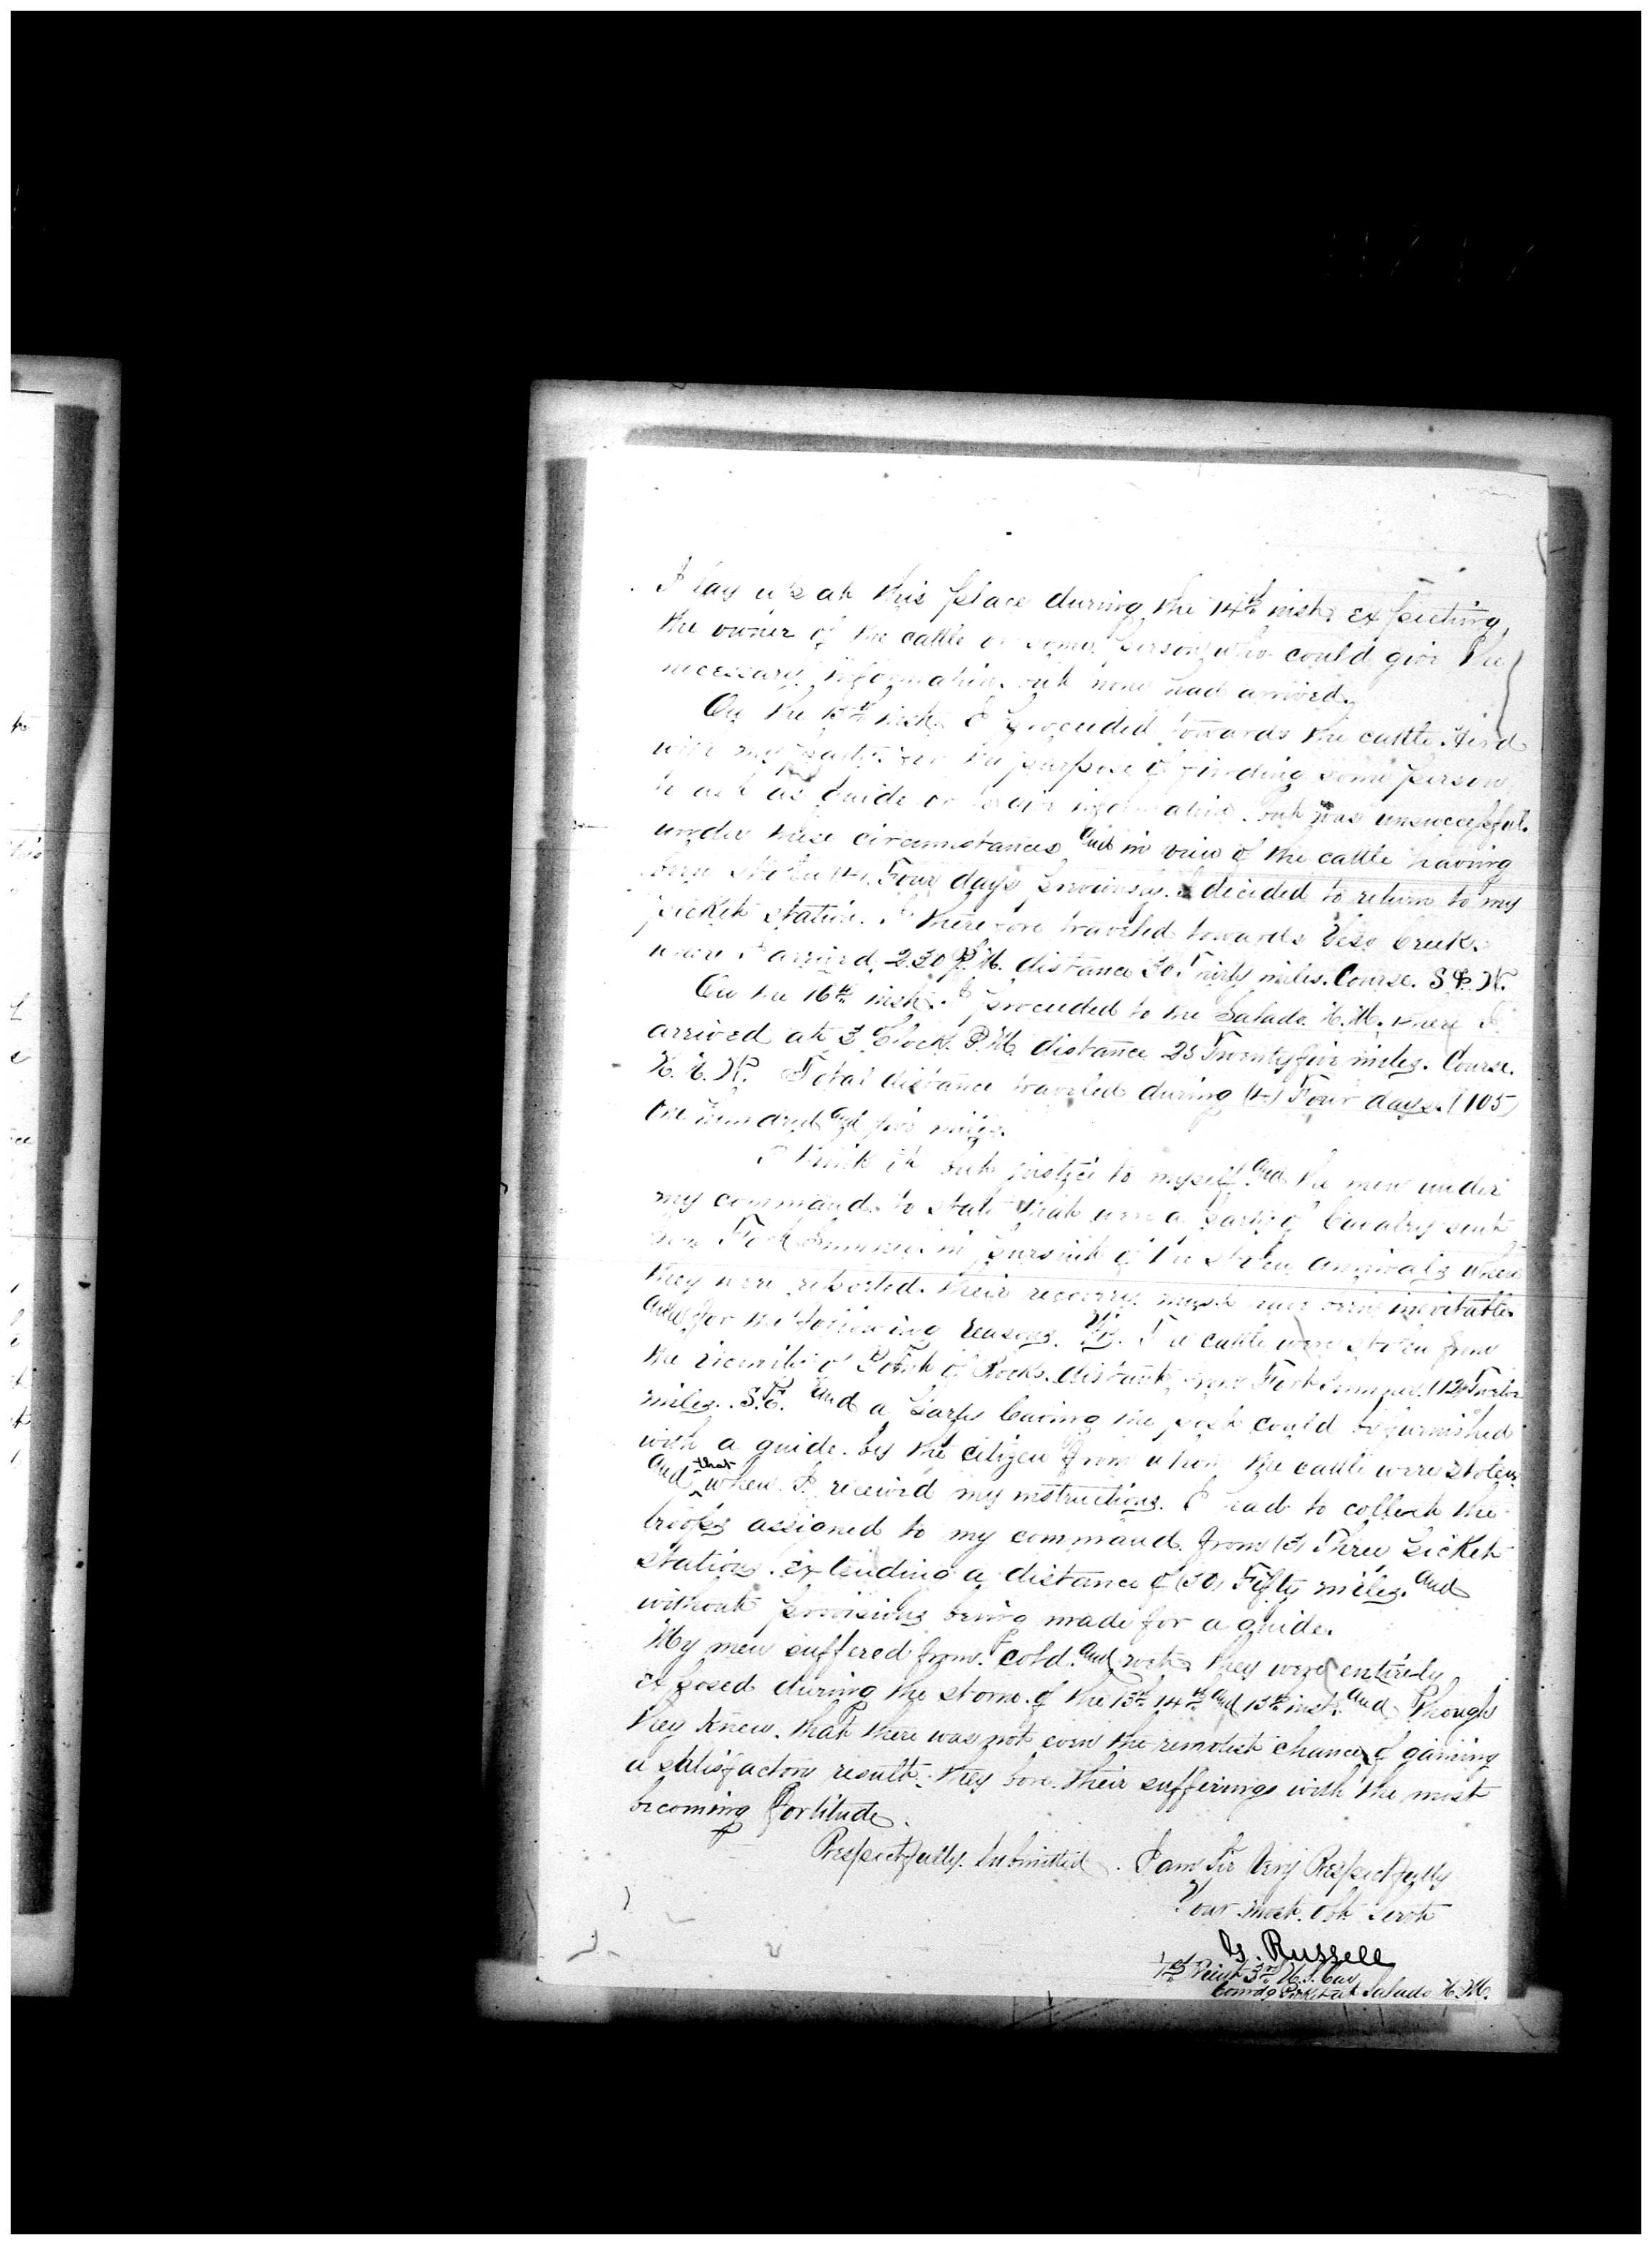 I lay up at this place during the 14th inst. expecting
the owner of the cattle or some person who could give the
necessary information. but none had arrived.
On the 15th inst. I proceeded towards the cattle Herd
with my party. for the purpose of finding some person
to act as guide or to give information. but was unsuccessful.
under these circumstances and in view of the cattle having
been stolen (4) Four days previously. I decided to return to my
picket station. I therefore traveled towards Creek.
where I arrived, 2.30 P.M. distance 30 Thirty miles. Course. S & W.
On the 16th inst. I proceeded to the Salado. N.M. where I
arrived at 3 Clock. P.M. distance 25 Twenty five miles. Course.
N. & W. Total distance traveled during (4) Four days. (105)
One hundred and five miles.
I think it but justice to myself and the men under
my command. to state that were a party of Cavalry sent
from Fort Sumner. in pursuit of the stolen animals when
they were reported. their recovery must have been inevitable.
and for the following reasons. Viz. The cattle were stolen from
the vicinity of Point of Rocks. distant, from Fort Sumner. (12) Twelve
miles. S.E. and a party leaving the post could be furnished
with a guide. by the citizen from whom the cattle were stolen.
and that when I received my instructions. I had to collect the
troops assigned to my command. from (3) Three Picket
stations. extending a distance of (50) Fifty miles. and
without provisions being made for a guide.
My men suffered from cold. and wet. they were entirely
exposed during the storm. of the 13th 14th and 15th inst. and though
they knew. that there was not even the remotest chance of gaining
a satisfactory result. they bore. their sufferings with the most
becoming fortitude.
Respectfully. Submitted. I am Sir Very Respectfully
Your most. Obt Servt
G. Russell
1st Lieut 3rd U.S. Cav
Comdg Picket at Salado N.M.